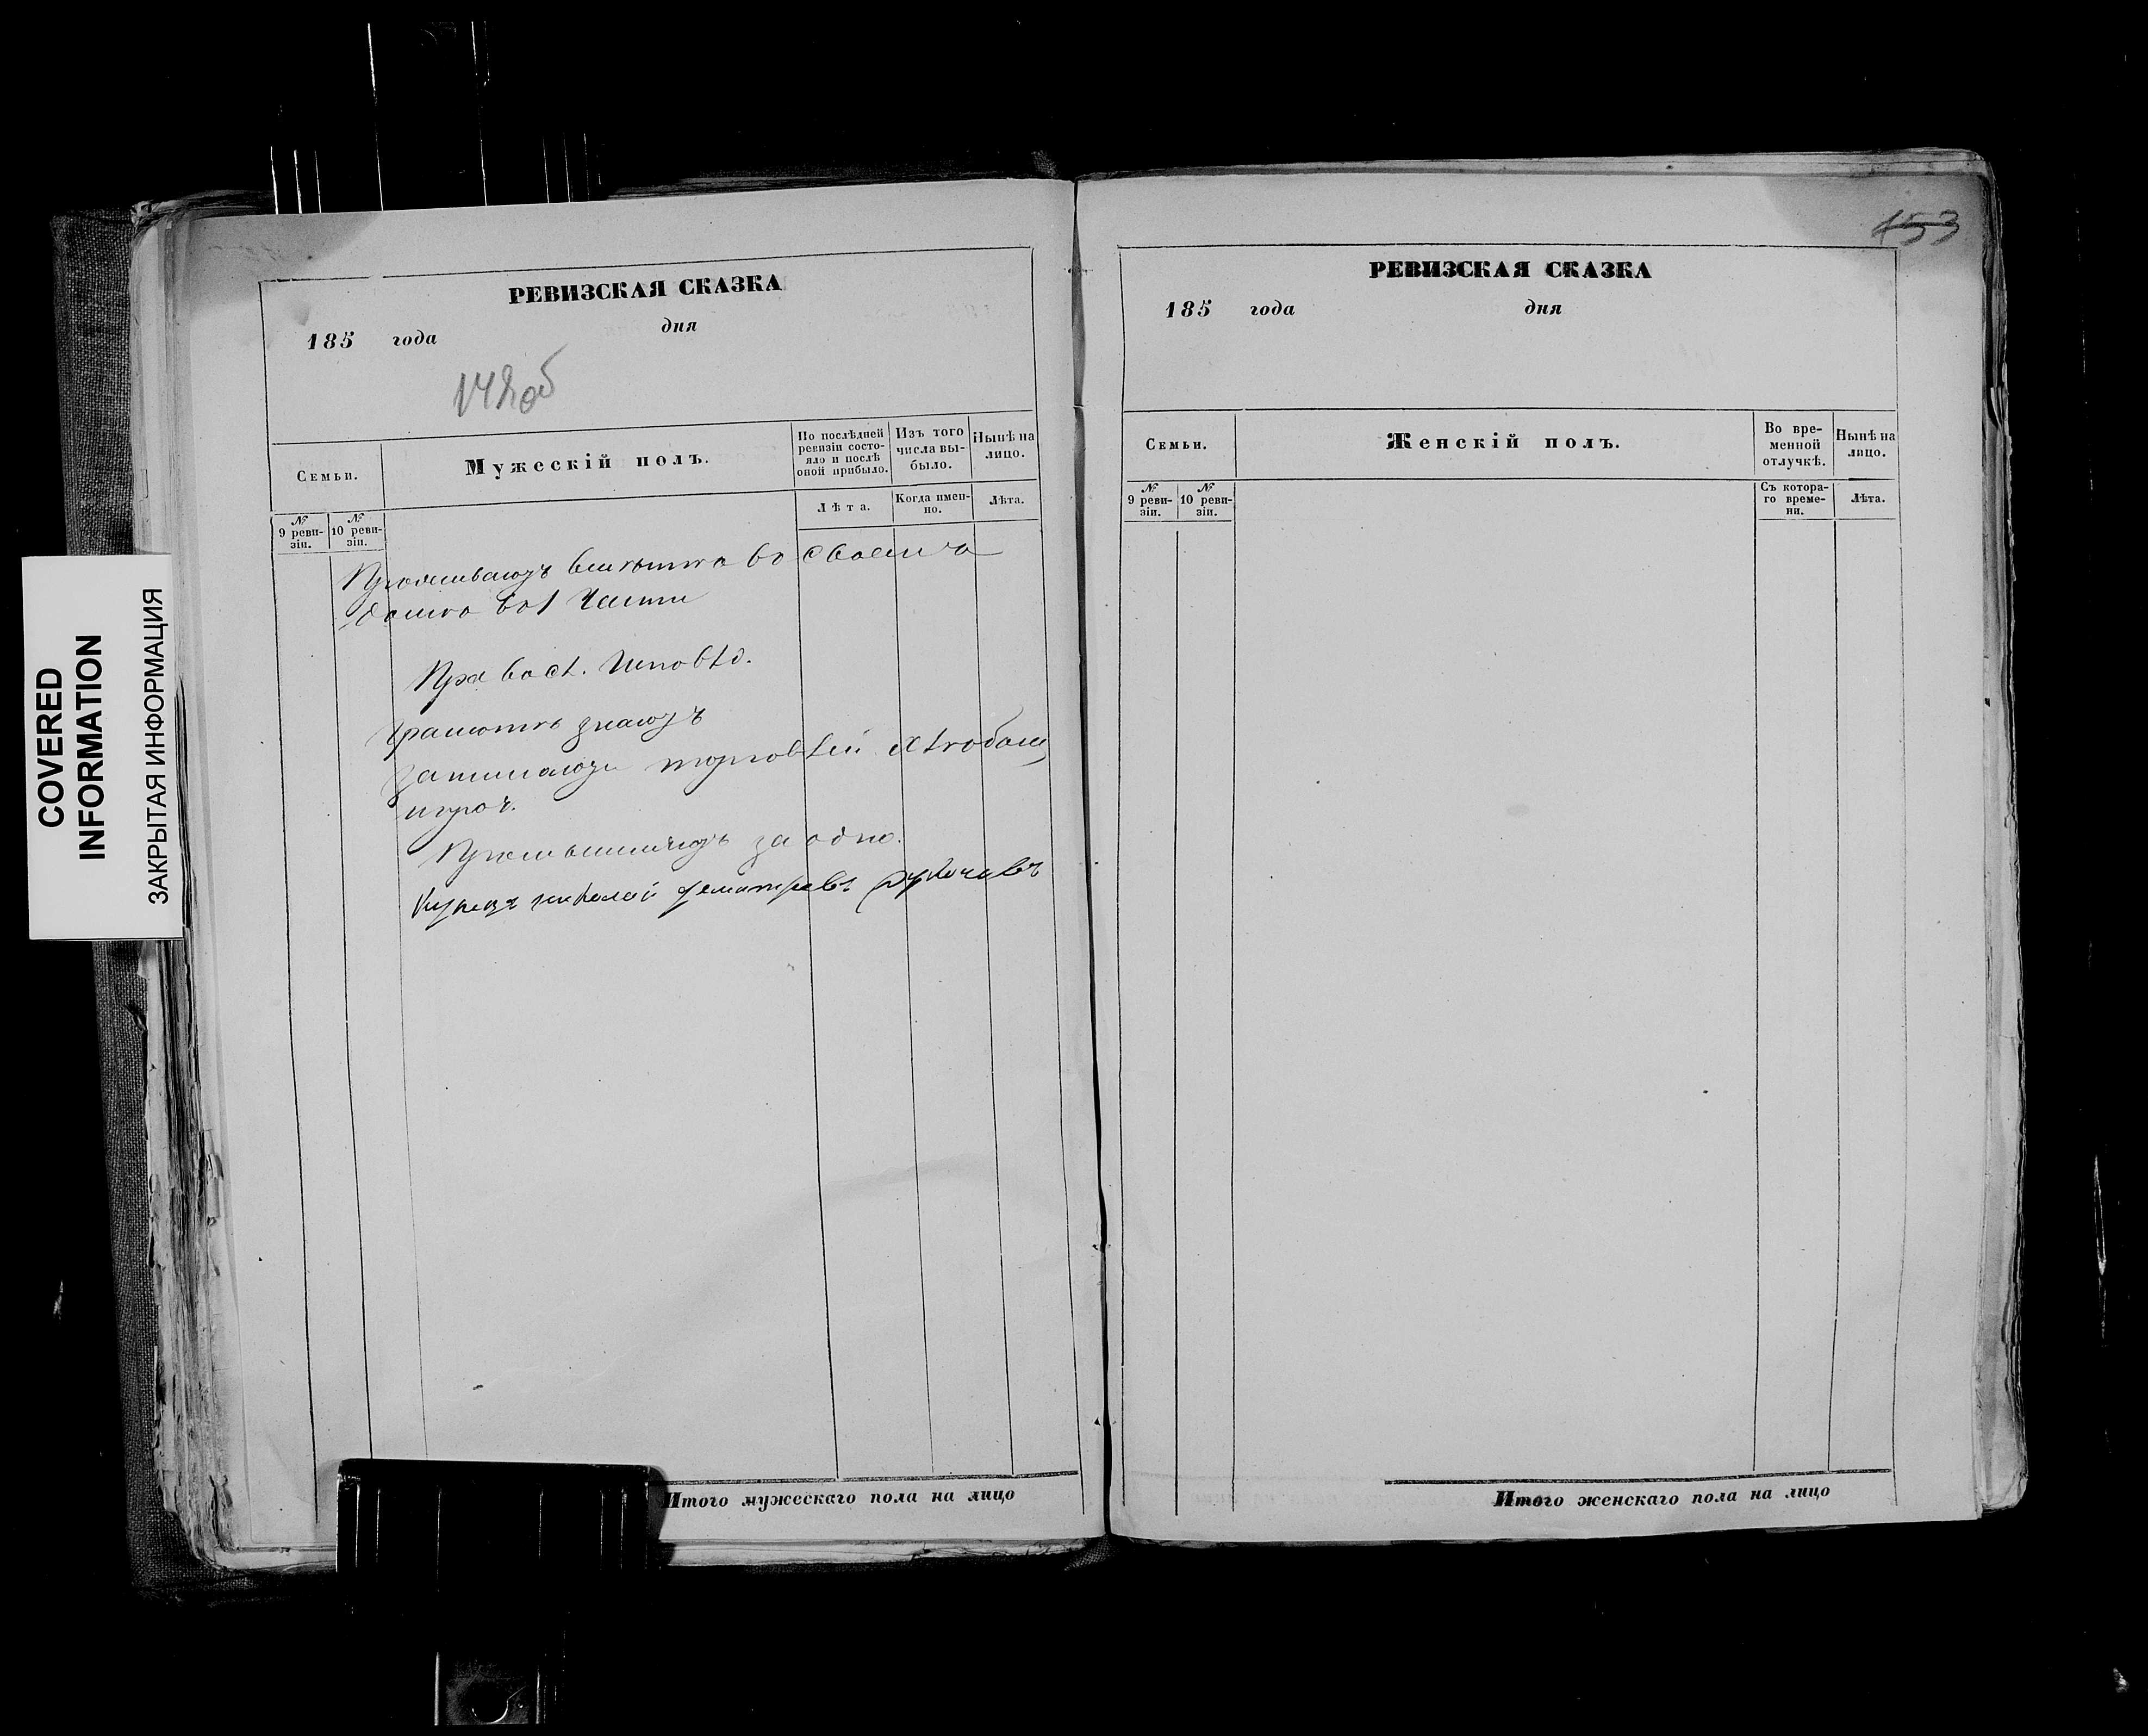 COVERED
INFORMATION
ЗАКРЫТАЯ ИНФОРМАЦИЯ
РЕВИЗСКАЯ СКАЗКА
185 года дня
142об
Семьи.
Мужескiй полъ.
По послѣдней
ревизiи состо-
яло и послѣ
оной прибыло.
Изъ того
числа вы-
было.
Нынѣ на
лицо.
№
9 реви-
зiи.
№
10 реви-
зiи.
Лѣта.
Когда имен-
но.
Лѣта.
Проживаютъ во своемъ
домѣ во 1 части
Прав вост. исповѣд.
грамотѣ знаютъ
занимаются торговлей хлѣбомъ
и проч.
за одно.
Купецъ николай
Итого мужескаго пола на лицо
153
РЕВИЗСКАЯ СКАЗКА
185 года дня
Семьи.
Женскiй полъ.
Во вре-
менной
отлучкѣ.
Нынѣ на
лицо.
№
9 реви-
зiи.
№
10 реви-
зiи.
Съ котора-
го време-
ни.
Лѣта.
Итого женскаго пола на лицо